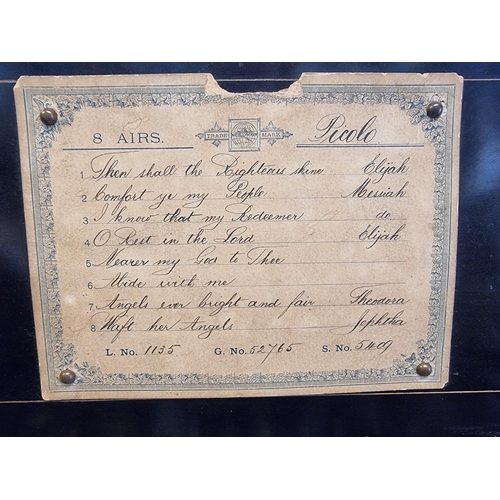 8 AIRS. TRADE MARK Picolo
1 Then shall the Righteous shine Elijah
2 Comfort ye my People Messiah
3 I know that my Redeemer do
4 O Rest in the Lord Elijah
5 Nearer my God to Thee
6 Abide with me
7 Angels ever bright and fair Theodora
8 Waft her Angels Jephtha
L. No. 1135 G. No. 52765 S. No. 5409